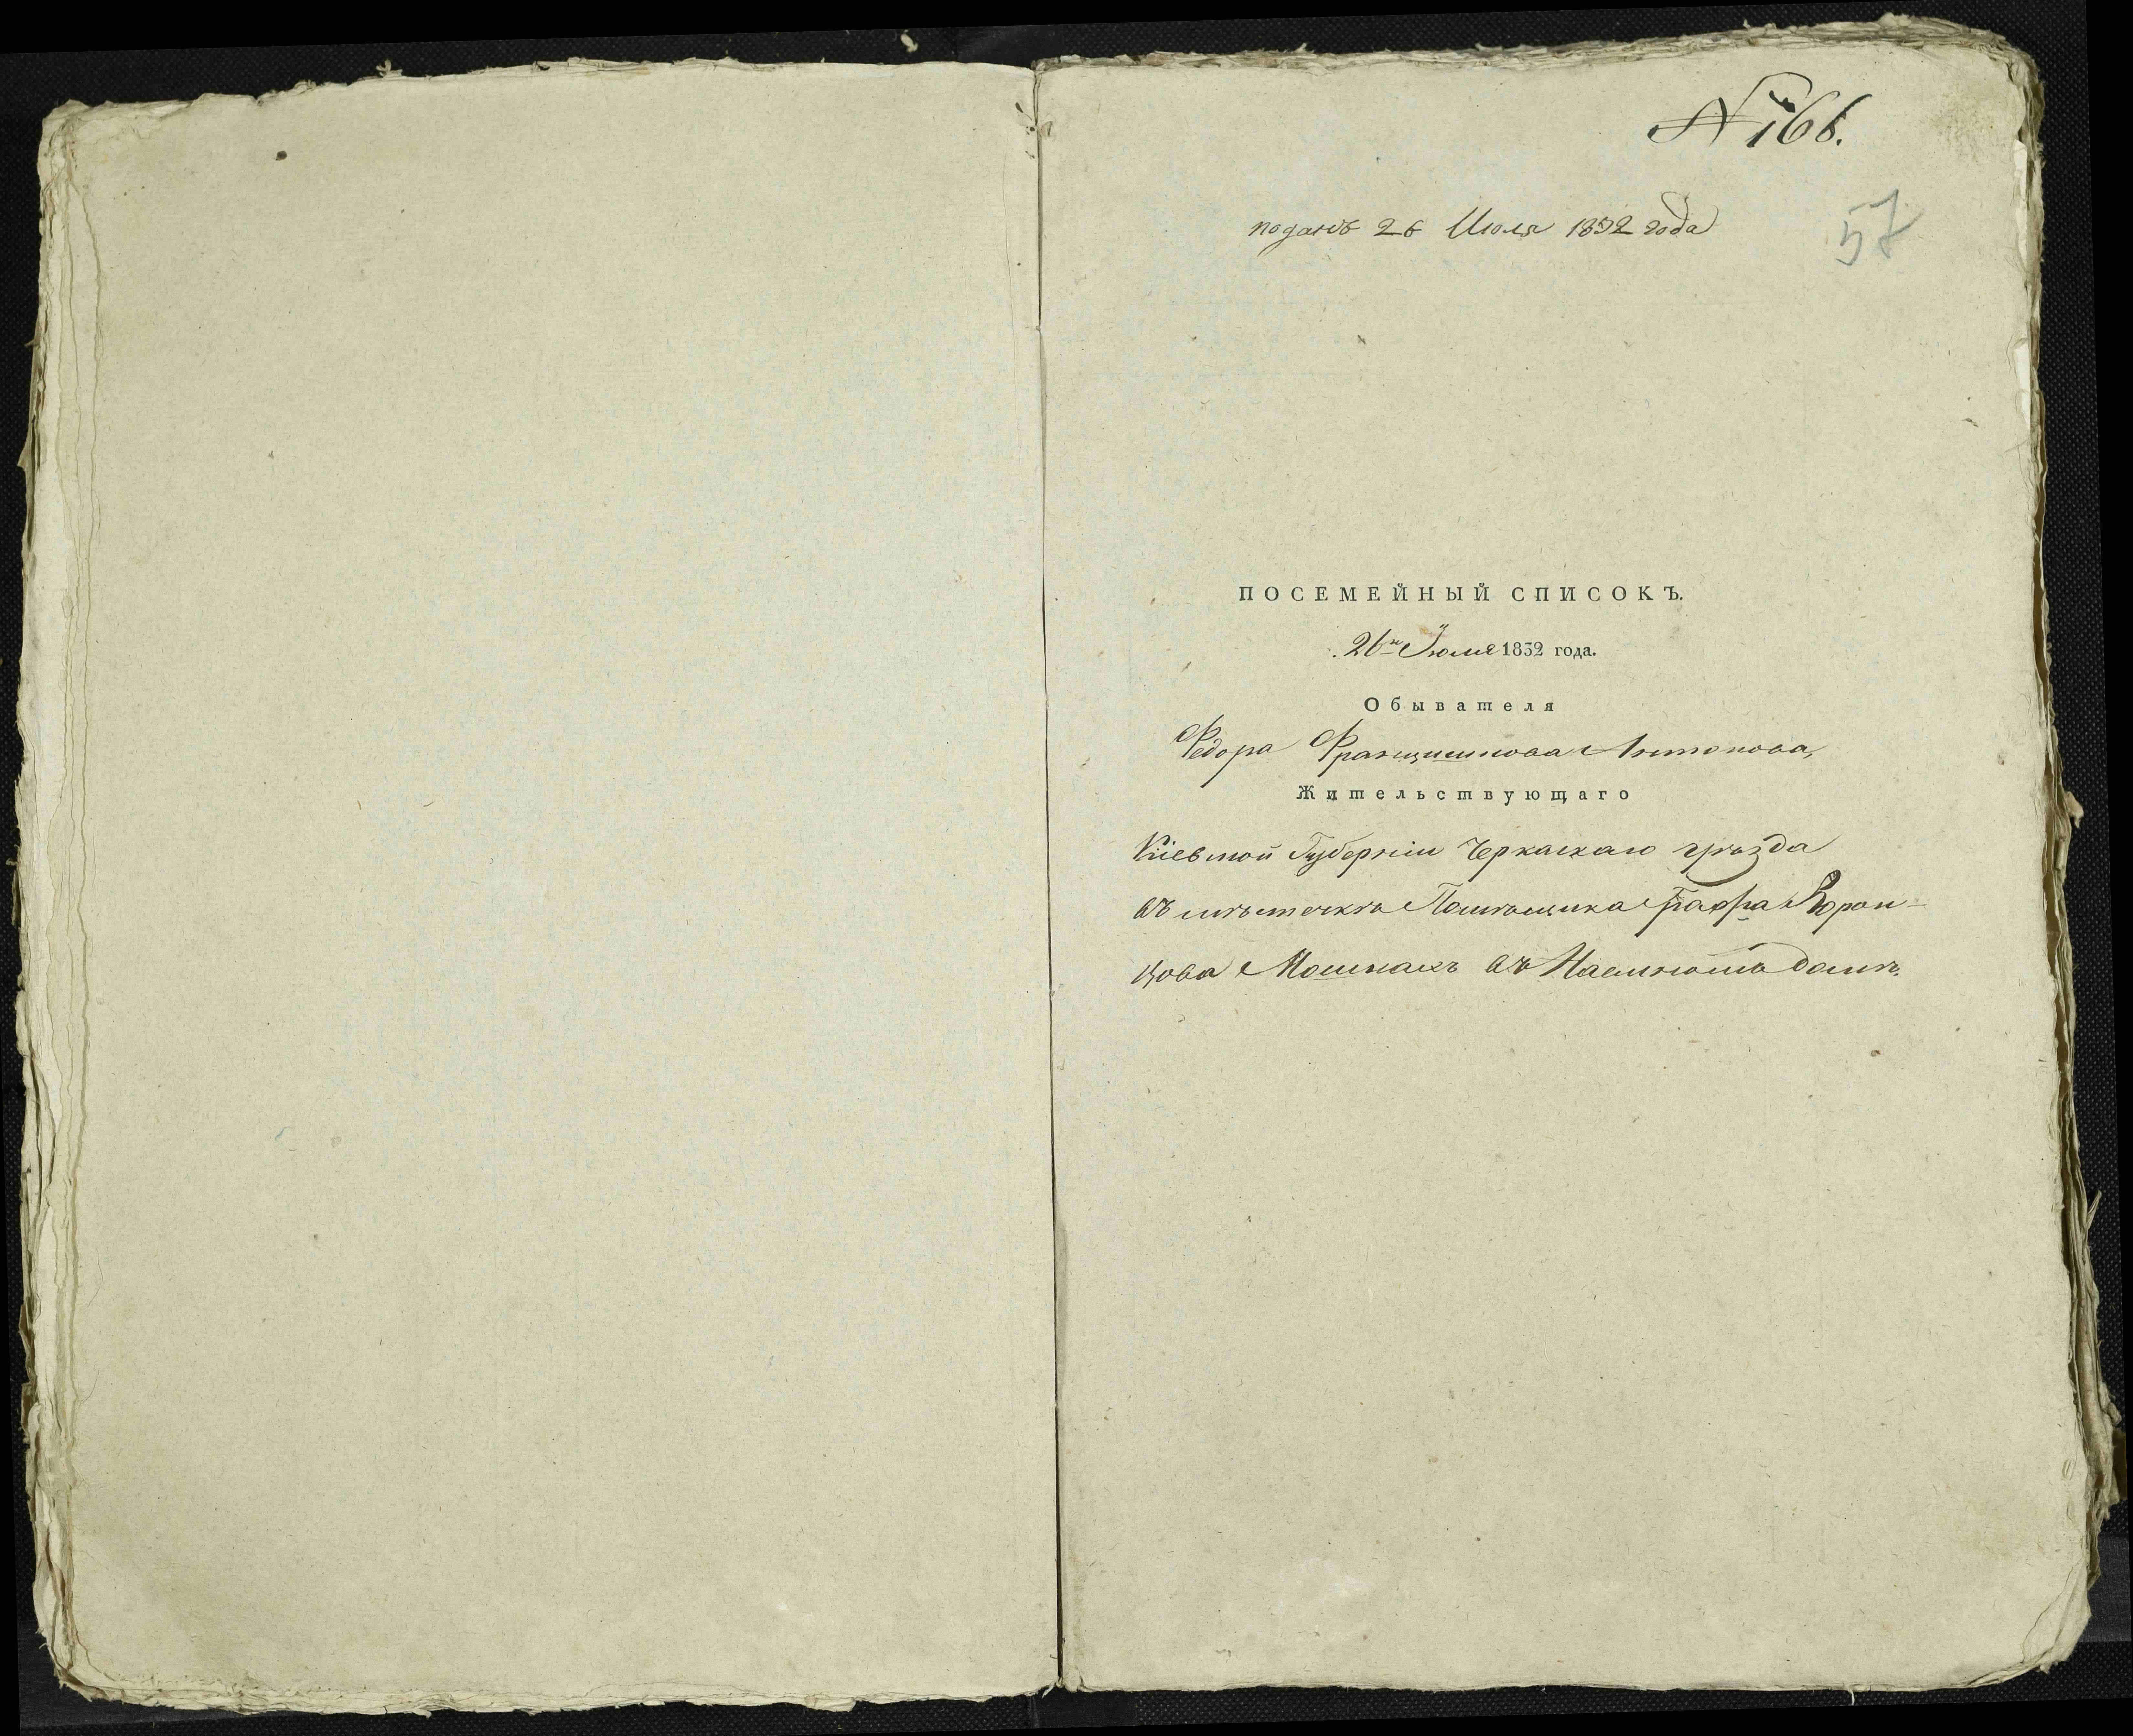 № 166.
поданъ 26 Июля 1832 года
57
ПОСЕМЕЙНЫЙ СПИСОКЪ.
26го Іюля 1832 года.
Обывателя
Федора Францишкова Антонова,
Жительствующаго
Кіевской Губерніи Черкаскаго уѣзда
въ мѣстечкѣ Помѣщика Графа Ворон-
цова Мошнахъ въ Наемномъ домѣ.